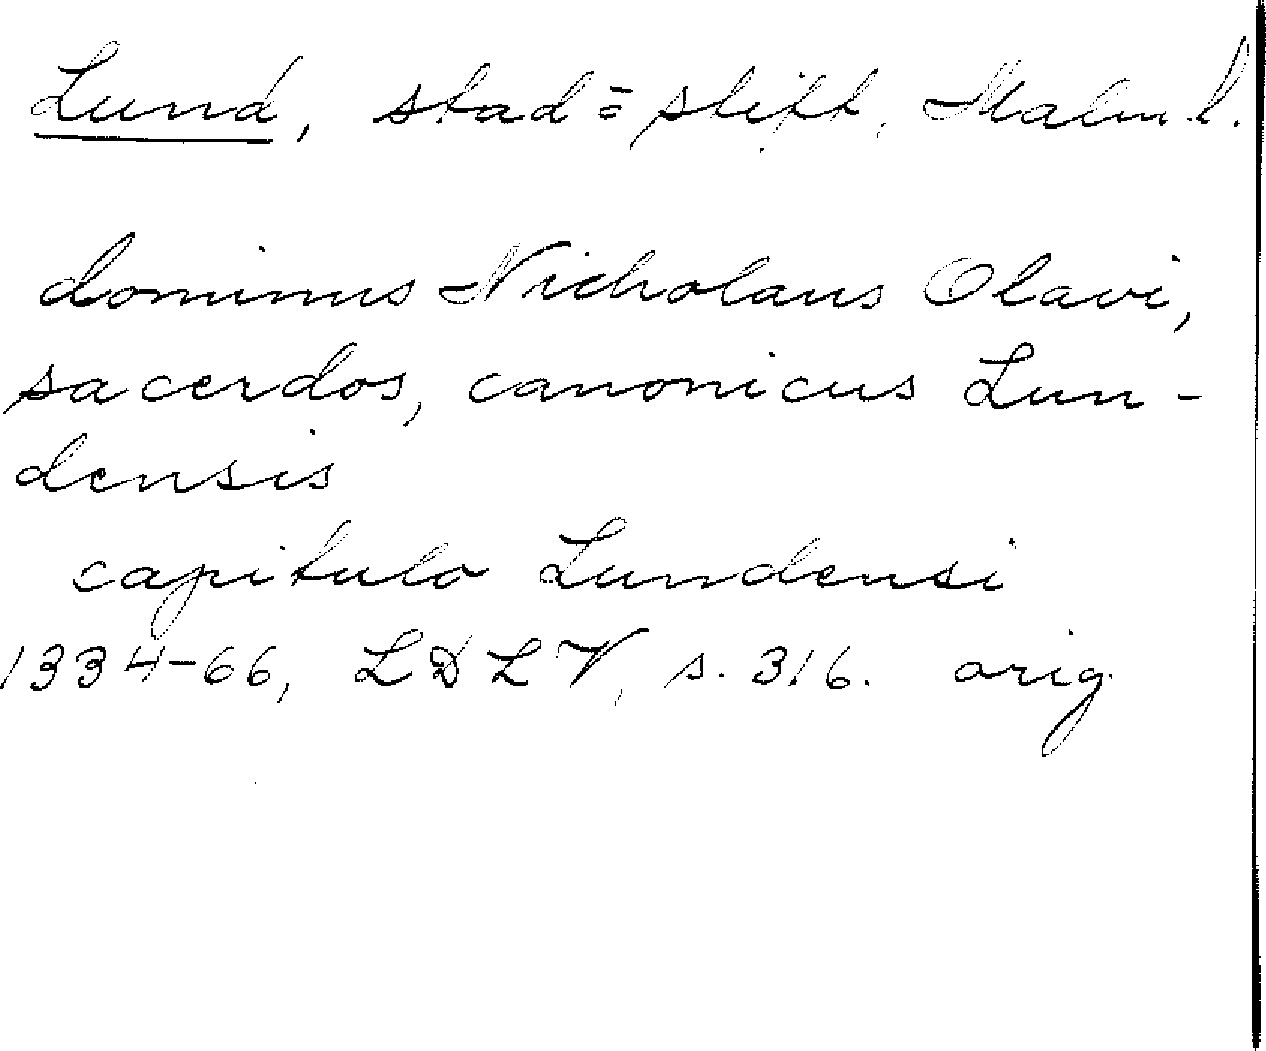 Lund, stad = stift, Malm. l.
dominus Nicholaus Olavi,
sacerdos, canonicus Lun-
densis
capitulo Lundensi
1334-66, LDLV, s. 316. orig.